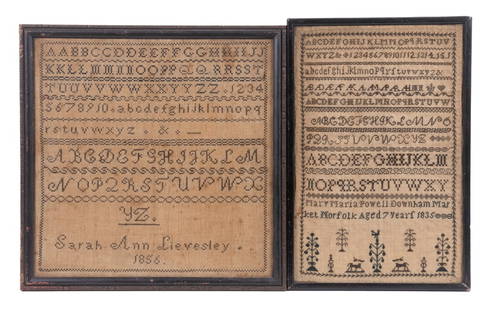 AABBCCDDEEFFGGHHIIJJ
KKLLMMNNOOPPQQRRSST
TUUVVWWXXYYZZ.1234
5678910.abcdefghijklmnopq
rstuvwxyz.&.
ABCDEFGHIJKLM
NOPQRSTUVWX
YZ.
Sarah Ann Lievesley.
1856.
ABCDEFGHIJKLMNOPQRSTUV
abcdefghijklmnopqrstuvwxyz&
ABCDEFGHIJKLMNOPQRSTUVW
ABCDEFGHIJKLMNO
PQRSTUVWXYZ
ABCDEFGHIJKLM
NOPQRSTUVWXY
Mary Maria Powell Downham Mar
ket Norfolk Aged 7 years 1835